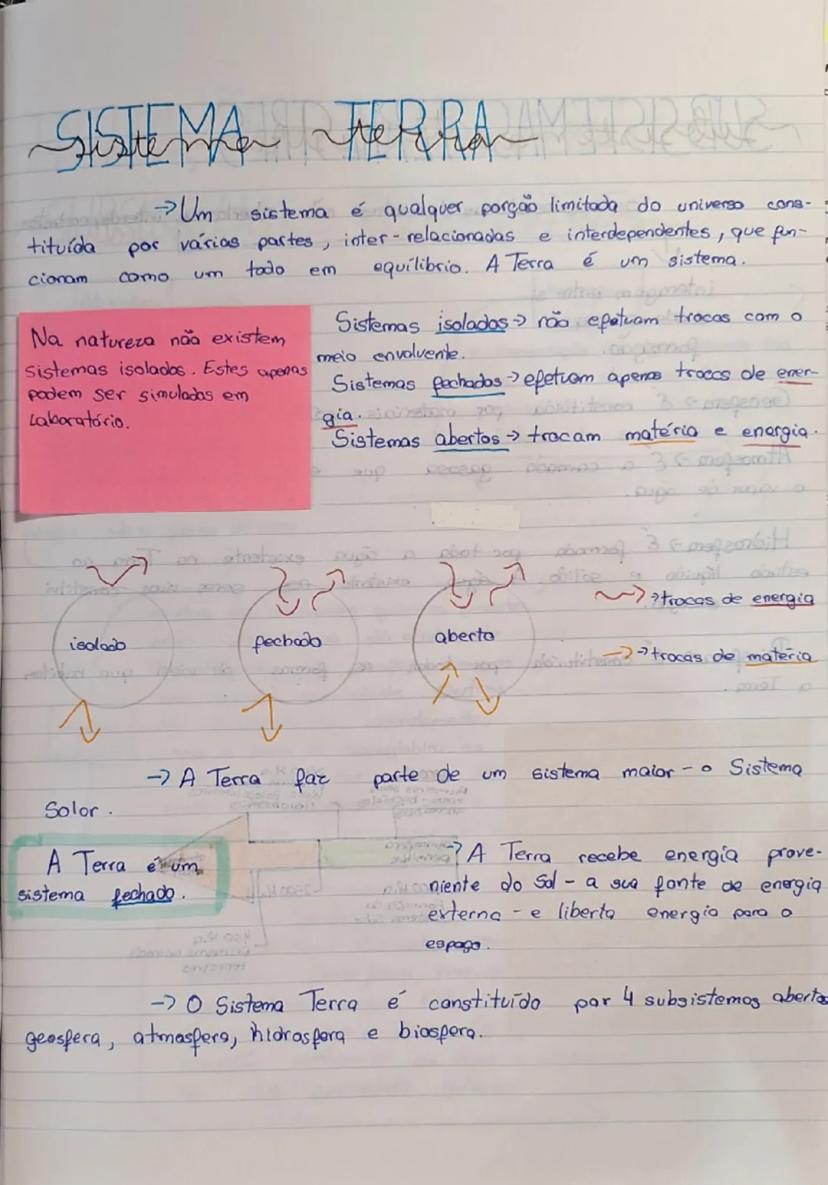 SISTEMA TERRA
Sistema terra
→ Um sistema é qualquer porção limitada do universo cons-
tituída por várias partes, inter-relacionadas e interdependentes, que fun-
cionam como um todo em equilíbrio. A Terra é um sistema.
Na natureza não existem
sistemas isolados. Estes apenas
podem ser simulados em
Laboratório.
Sistemas isolados → não efetuam trocas com o
meio envolvente.
Sistemas fechados → efetuam apenas trocas de ener-
gia.
Sistemas abertos → trocam matéria e energia.
isolado
fechado
aberto
→ trocas de energia
→ trocas de matéria
→ A Terra faz parte de um sistema maior - o Sistema
Solar.
A Terra é um
sistema fechado.
→ A Terra recebe energia prove-
niente do Sol - a sua fonte de energia
externa - e liberta energia para o
espaço.
→ O Sistema Terra é constituído por 4 subsistemas abertos
geosfera, atmosfera, hidrosfera e biosfera.